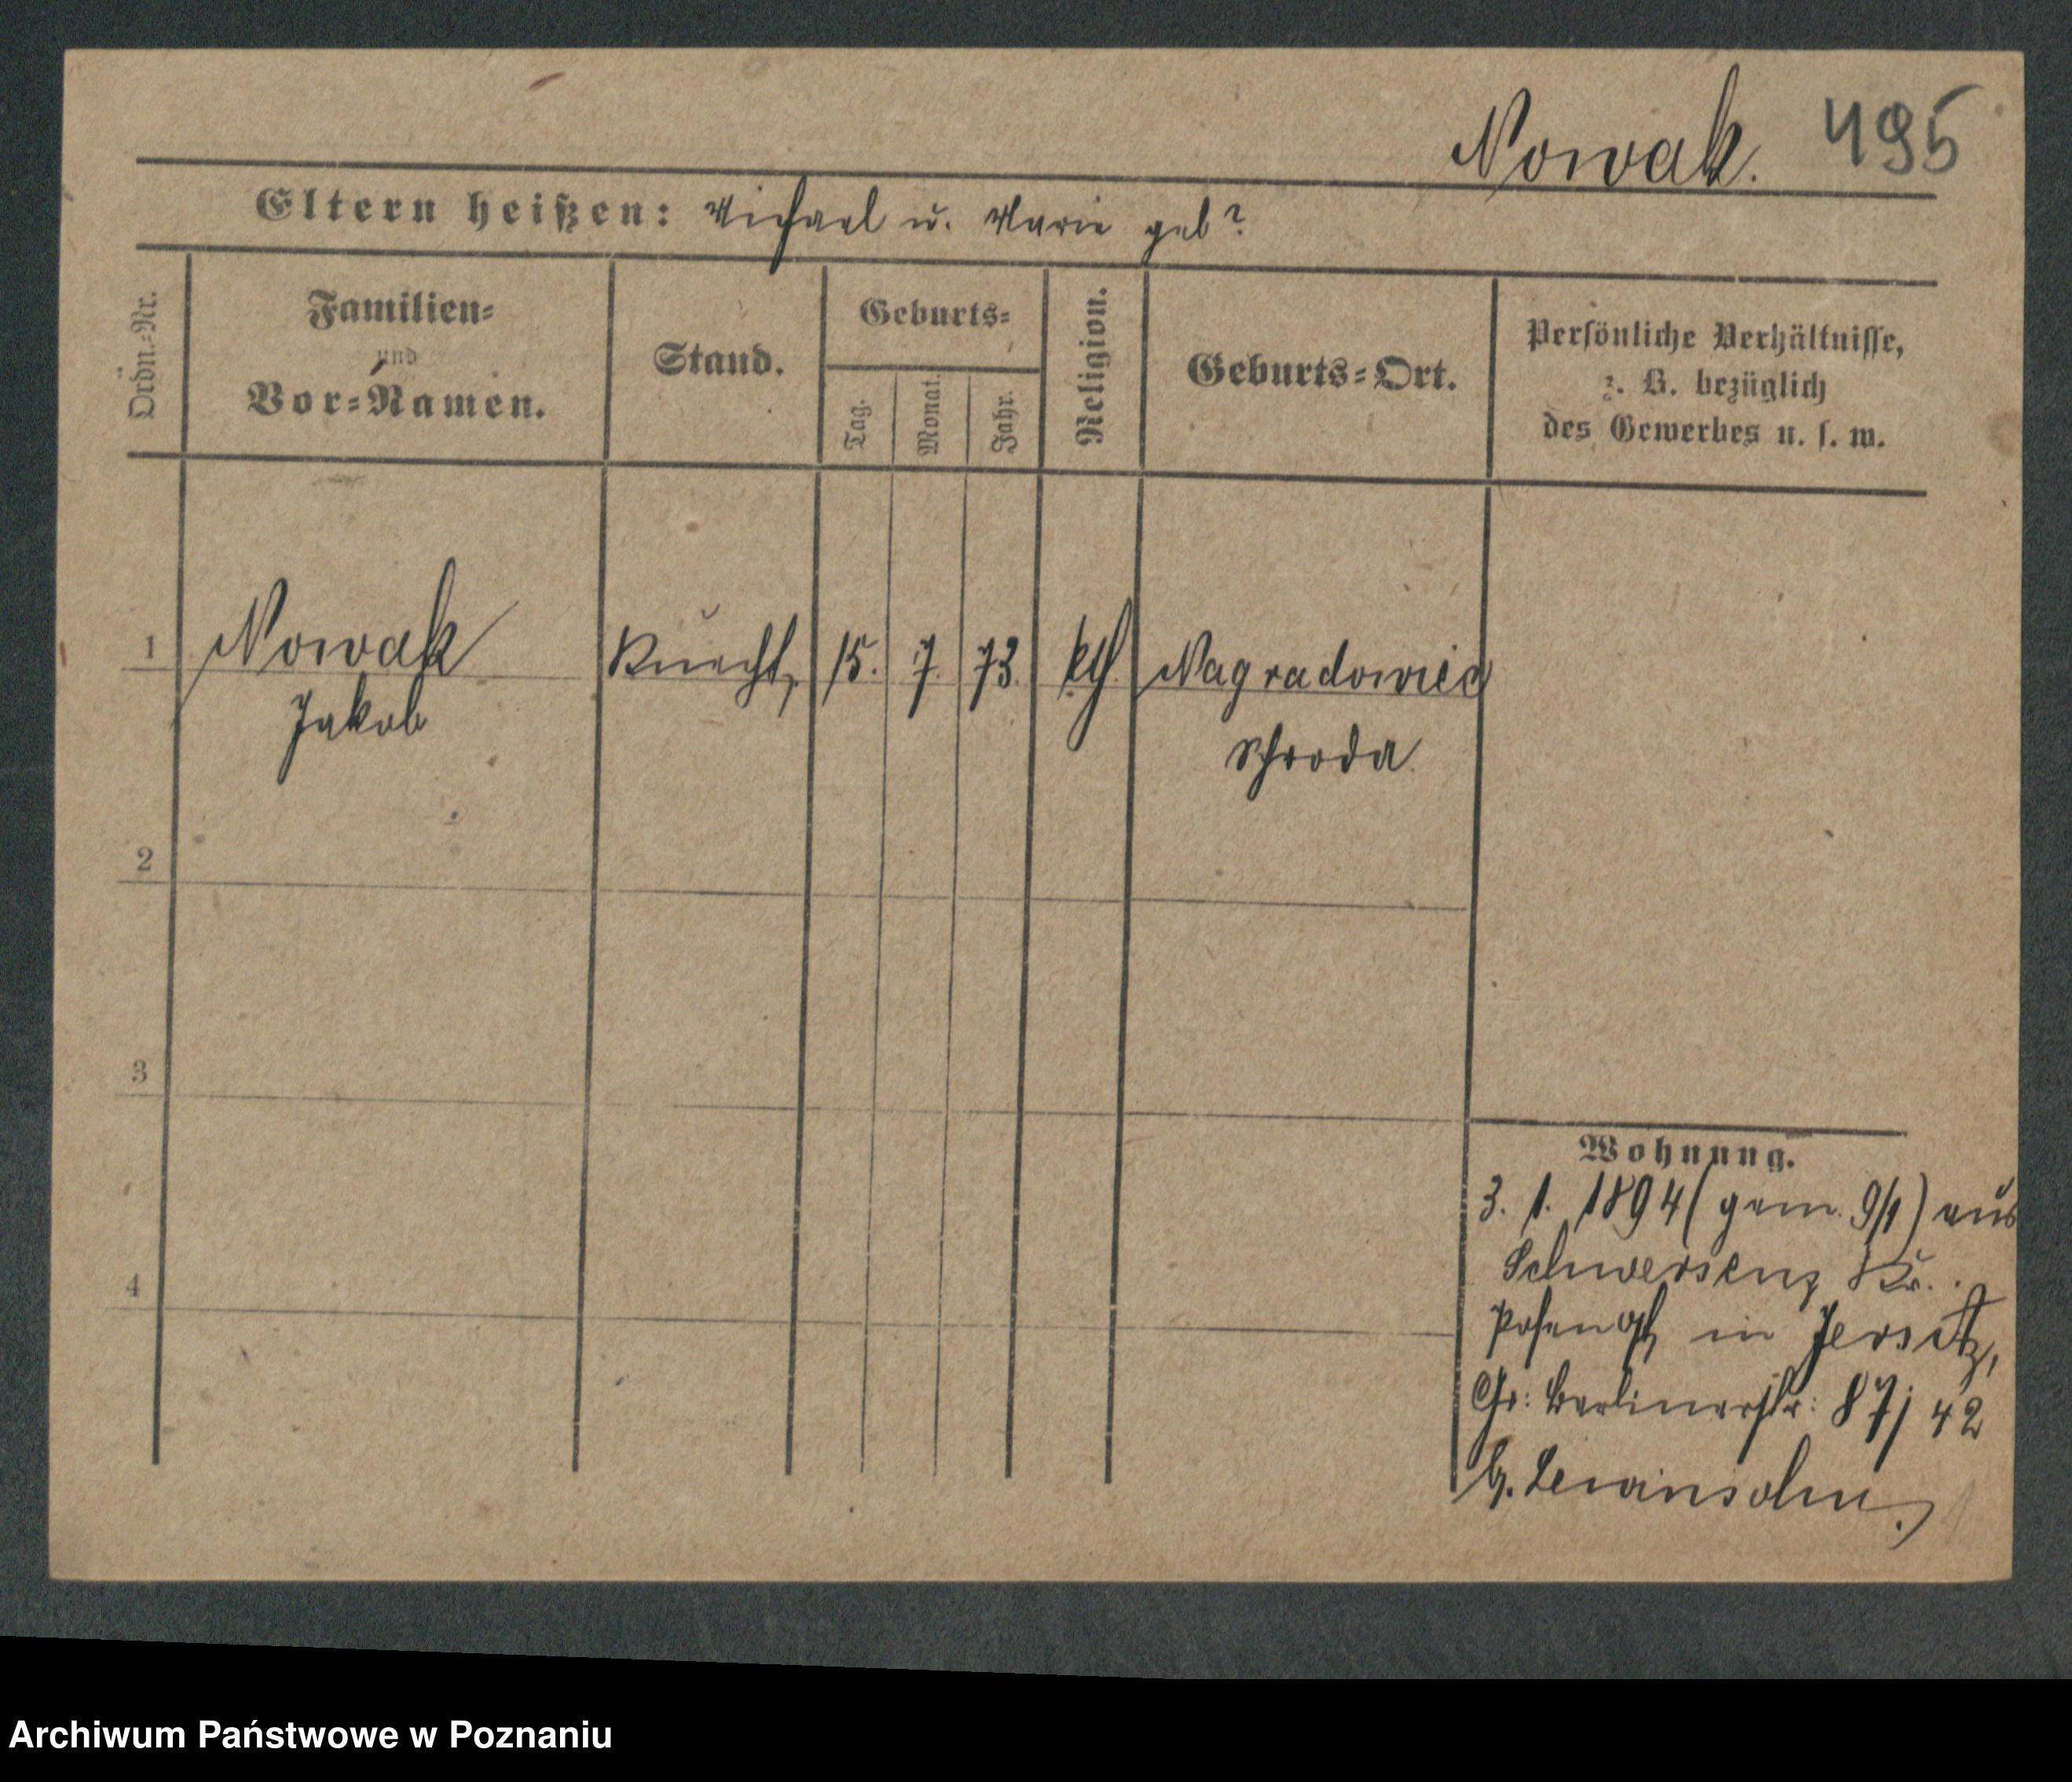 Nowak. 495
Eltern heißen: Michael u. Marie geb?
Ordn.-Nr.
Familien-
und
Vor-Namen.
Stand.
Geburts-
Tag.
Monat.
Jahr.
Religion.
Geburts-Ort.
Persönliche Verhältnisse,
z. B. bezüglich
des Gewerbes u. s. w.
1 Nowak Knecht, 15. 7. 73. kth. Nagradowice
Jakob Schroda
2
3
4
Wohnung.
3. 1. 1894 (gem. 9/1) aus
Schwersenz Kr.
Posen Ost, in Jersitz,
Gr: Berlinerstr: 87/42
b. Lewinsohn.
Archiwum Państwowe w Poznaniu